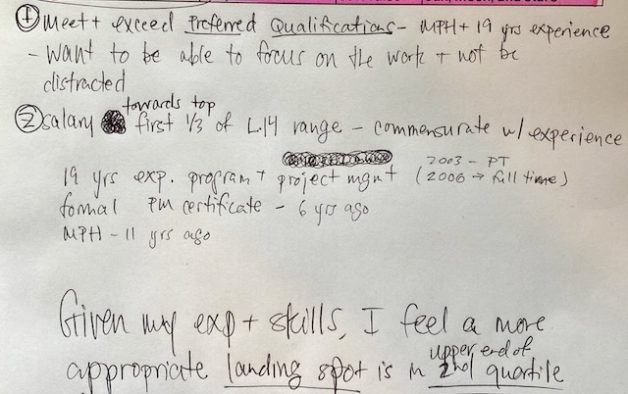 ① Meet + exceed Preferred Qualifications - MPH + 19 yrs experience
- Want to be able to focus on the work + not be
distracted
towards top
② Salary first 1/3 of L.14 range - commensurate w/ experience
19 yrs exp. program + project mgmt (2003 - PT
2006 → full time)
formal PM certificate - 6 yrs ago
MPH - 11 yrs ago
Given my exp + skills, I feel a more
upper end of
appropriate landing spot is in 2nd quartile